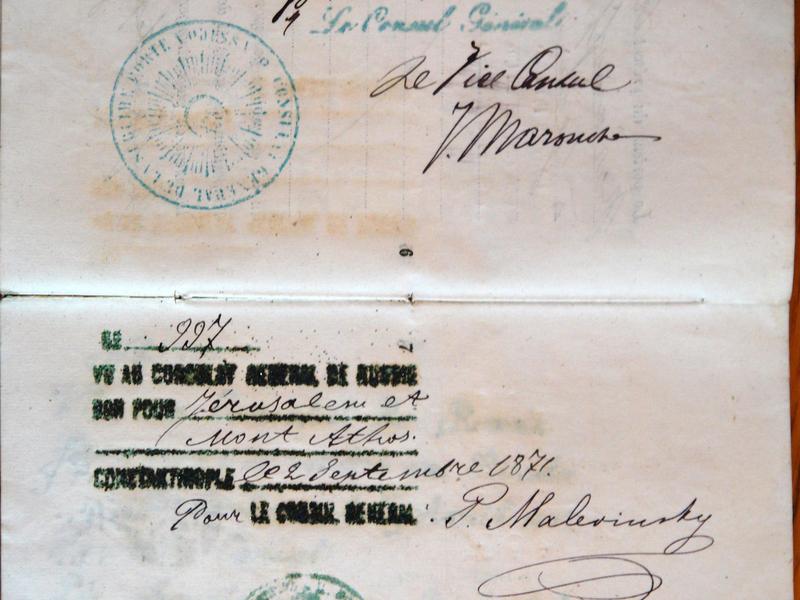 Le Consul Général
CONSULAT GENERAL DE LA SUBLIME PORTE A ODESSA
Le Vice Consul
6
7
No 997
VU AU CONSULAT GENERAL DE RUSSIE
BON POUR Jérusalem et
Mont Athos.
CONSTANTINOPLE le 2 Septembre 1871.
Pour LE CONSUL GENERAL: P. Malevinsky